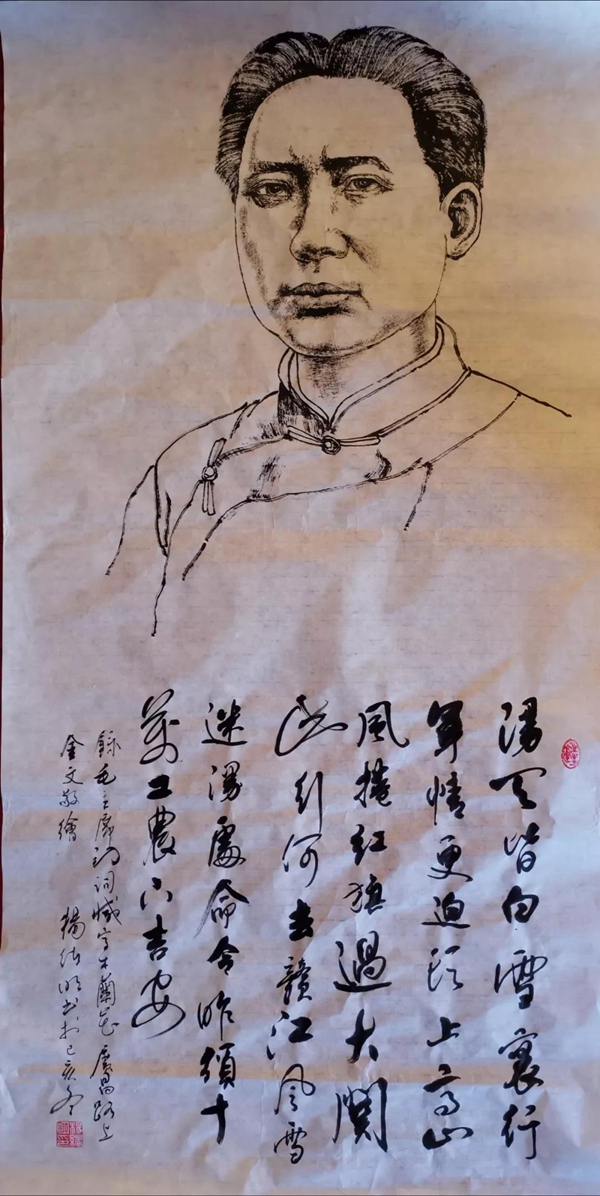 漫天皆白雪裏行
軍情更迫頭上高山
風捲紅旗過大關
此行何去贛江風雪
迷漫處命令昨頒十
萬工農下吉安
錄毛主席詩詞減字木蘭花廣昌路上
金文敬繪 楊 書於己亥冬